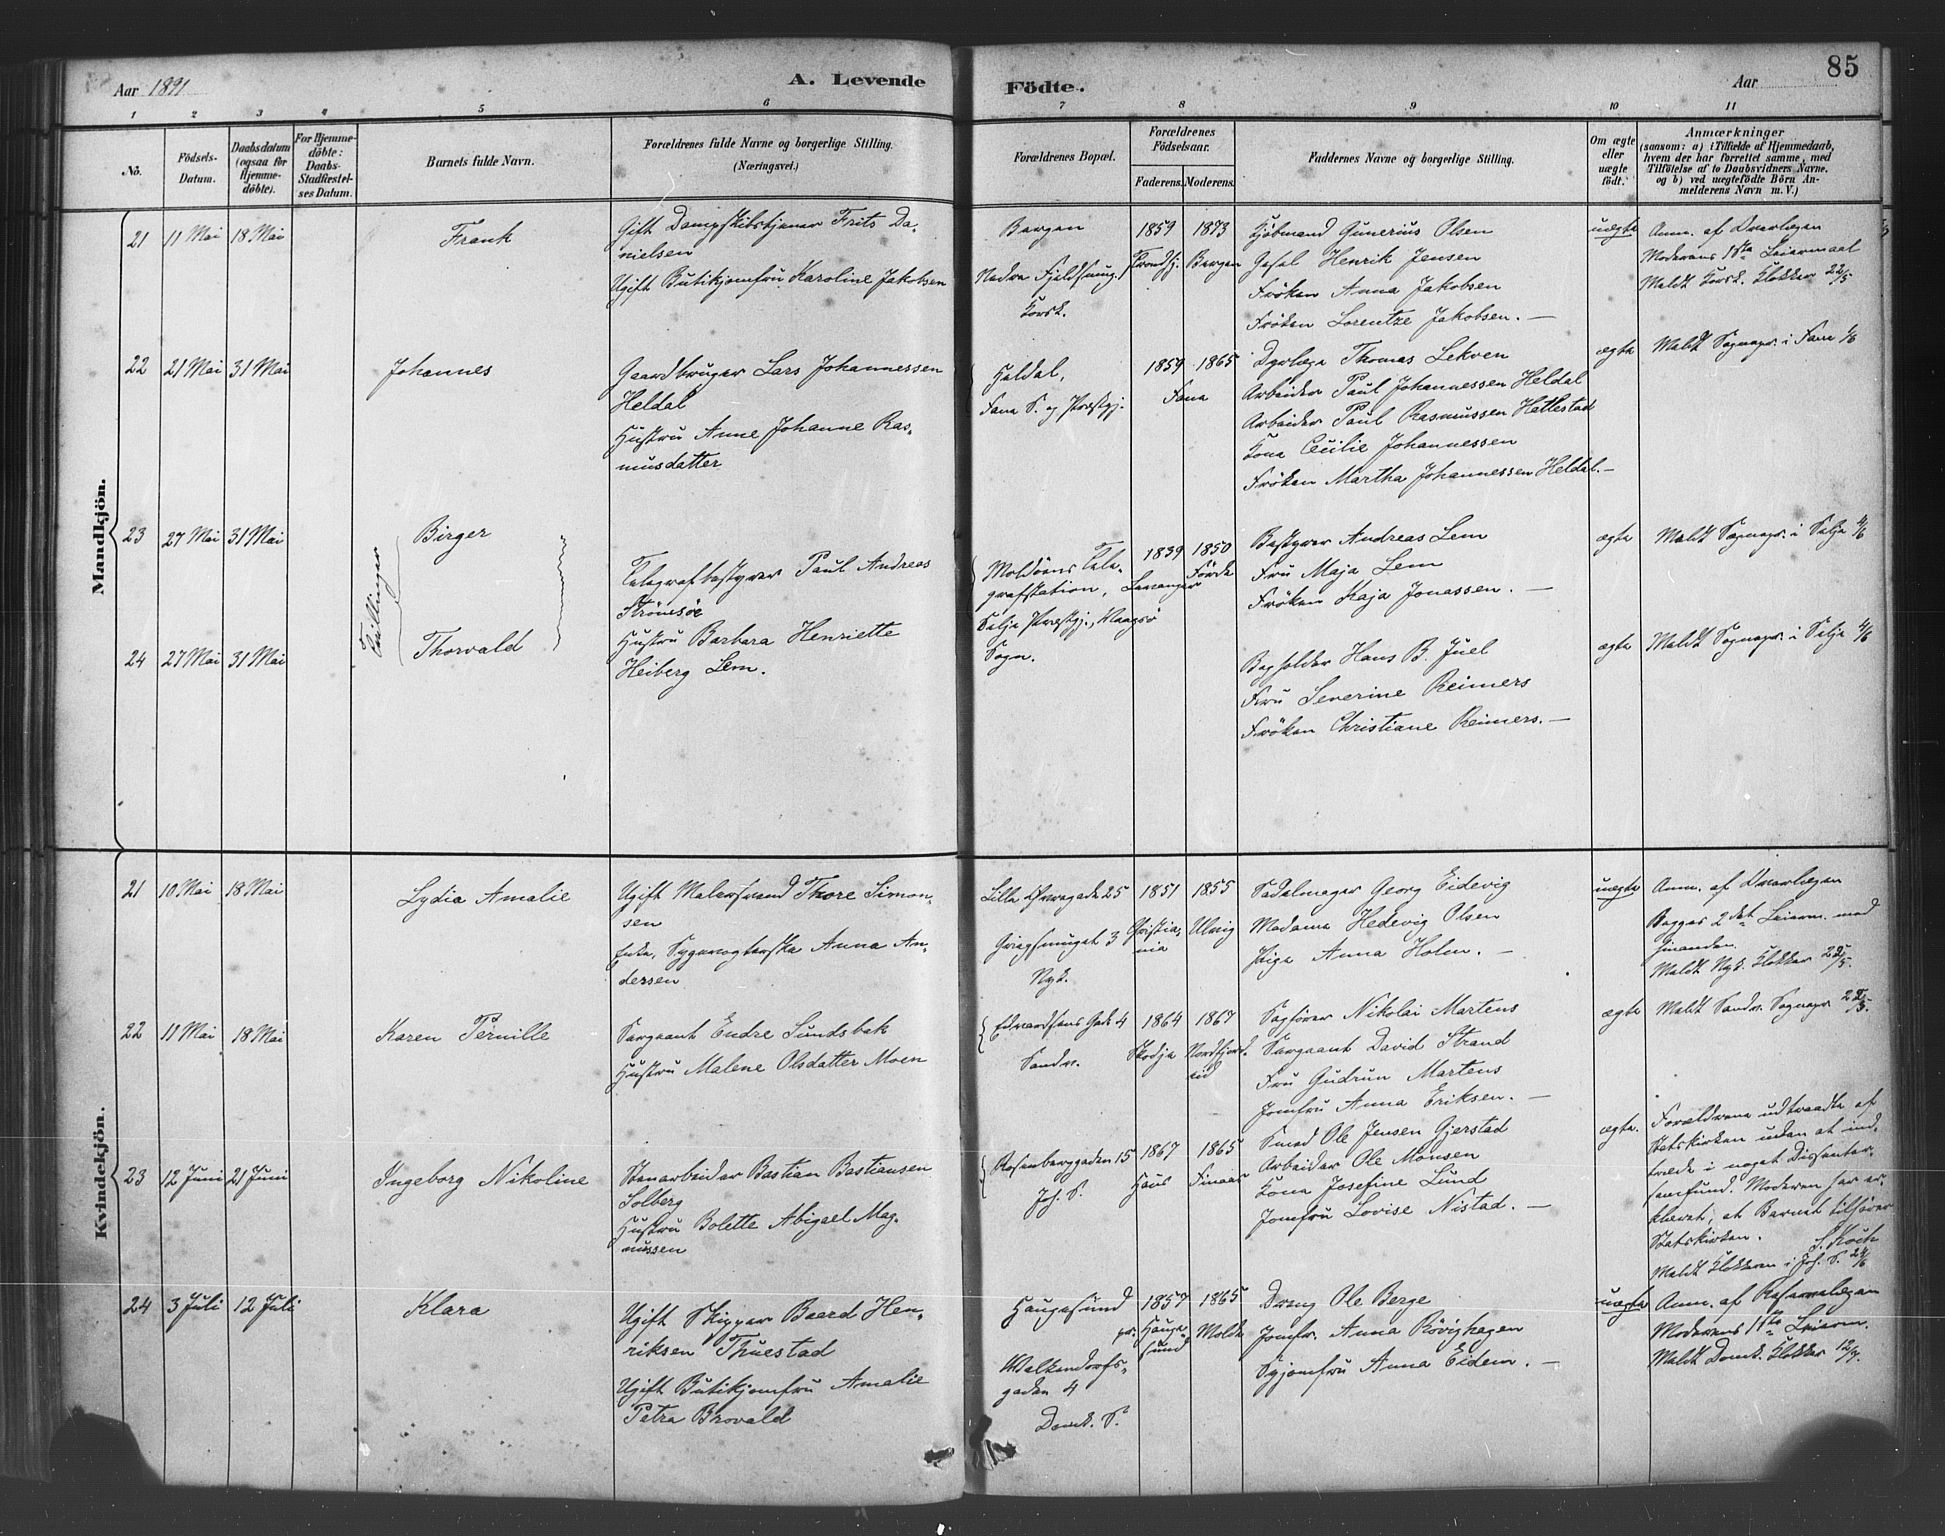 Aar 1891
A. Levende
Födte.
Aar
85
1 2 3 4 5 6 7 8 9 10 11
No.
Födsels-
Datum.
Daabsdatum
(ogsaa for
Hjemme-
döbte).
For Hjemme-
döbte:
Daabs-
Stadfæstel-
ses Datum.
Barnets fulde Navn.
Forældrenes fulde Navne og borgerlige Stilling.
(Næringsvei.)
Forældrenes Bopæl.
Forældrenes
Födselsaar.
Faderens. Moderens.
Faddernes Navne og borgerlige Stilling.
Om ægte
eller
uægte
födt.
Anmærkninger
(saasom: a) i Tilfælde af Hjemmedaab,
hvem der har forrettet samme, med
Tilföielse af to Daabsvidners Navne.
og b) ved uægtefödte Börn An-
melderens Navn m. V.)
Mandkjön.
21 11 Mai 18 Mai
Frank
Gift Dampskibstjener Frits Da-
nielsen
Ugift Butikjomfru Karoline Jakobsen
Bergen
Nedre Fjeldsmug.
Korsk.
1859 1873
Trondhj. Bergen
Kjöbmand Gunerius Olsen
Gesel Henrik Jensen
Fröken Anna Jakobsen
Fröken Lorentze Jakobsen. —
uægte
Anm. af Overlægen
Moderens 1ste Leiermaal
Meldt Korsk. Klokker 22/5
22 21 Mai 31 Mai
Johannes
Gaardbruger Lars Johannessen
Heldal
Hustru Anne Johanne Ras-
musdatter
Heldal,
Fana S. og Præstgj.
1859 1865
Fana
Dyrlæge Thomas Lekven
Arbeider Paul Johannessen Heldal
Arbeider Paul Rasmussen Hattestad
Kone Cecilie Johannessen
Fröken Martha Johannessen Heldal. —
ægte
Meldt Sognepr. i Fane 1/6
23 27 Mai 31 Mai
Tvillinger
Birger
Telegrafbestyrer Paul Andreas
Strömsöe
Hustru Barbara Henriette
Heiberg Lem.
Moldöens Tele-
grafstation,
Selje Præstgj., Vaagsö
Sogn.
1839 1850
Levanger Förde
Bestyrer Andreas Lem
Fru Maja Lem
Fröken Kaja Jonassen. —
ægte
Meldt Sognepr. i Selje 4/6
24 27 Mai 31 Mai
Thorvald
Bogholder Hans B. Juel
Fru Severine Reimers
Fröken Christiane Reimers. —
ægte
Meldt Sognepr. i Selje 4/6
Kvindekjön.
21 10 Mai 18 Mai
Lydia Amalie
Ugift Malersvend Thore Simon-
sen
Enke, Sygevogterske Anna An-
dersen
Lille Övregade 25
Griegsmuget 3
Nyk.
1851 1855
Christia-
nia
Ulvig
Sadelmager Georg Eidevig
Madame Hedevig Olsen
Pige Anna Holm. —
uægte
Anm. af Overlægen
Begges 2det Leierm. med
hinanden.
Meldt Nyk. Klokker 22/5.
22 11 Mai 18 Mai
Karen Pernille
Sergeant Endre Sundsbak
Hustru Malene Olsdatter Moen
Edvardsens Gade 4
Sandv.
1864 1867
Skodje Nordfjord-
eid
Sagförer Nikolai Martens
Sergeant David Strand
Fru Gudrun Martens
Jomfru Anna Eriksen. —
ægte
Meldt Sandv. Sognepr. 22/5.
23 12 Juni 21 Juni
Ingeborg Nikoline
Stenarbeider Bastian Bastiansen
Solberg
Hustru Bolette Abigael Mag-
nussen
Rosenberggaden 15
Joh. S.
1867 1865
Haus Finaas
Smed Ole Jensen Gjerstad
Arbeider Ole Monsen
Kone Josefine Lund
Jomfru Lovise Nistad. —
ægte.
Forældrene udtraadte af
Statskirken uden at ind-
træde i noget Dissenter-
samfund. Moderen har er-
klæret, at Barnet tilhörer
Statskirken. S. Koch
Meldt Klokkeren i Joh. S. 24/6
24 3 Juli 12 Juli
Klara
Ugift Skipper Baard Hen-
riksen Thuestad
Ugift Butikjomfru Amalie
Petra Brovald
Haugesund
pr.
Walkendorfs-
gaden 4
Domk. S.
1857 1865
Hauge-
sund
Molde
Dreng Ole Berge
Jomfr. Anna Rövighagen
Syjomfru Anna Eidem. —
uægte
Anm. af Reservelægen
Moderens 1ste Leierm.
Meldt Domk. Klokker 12/7.